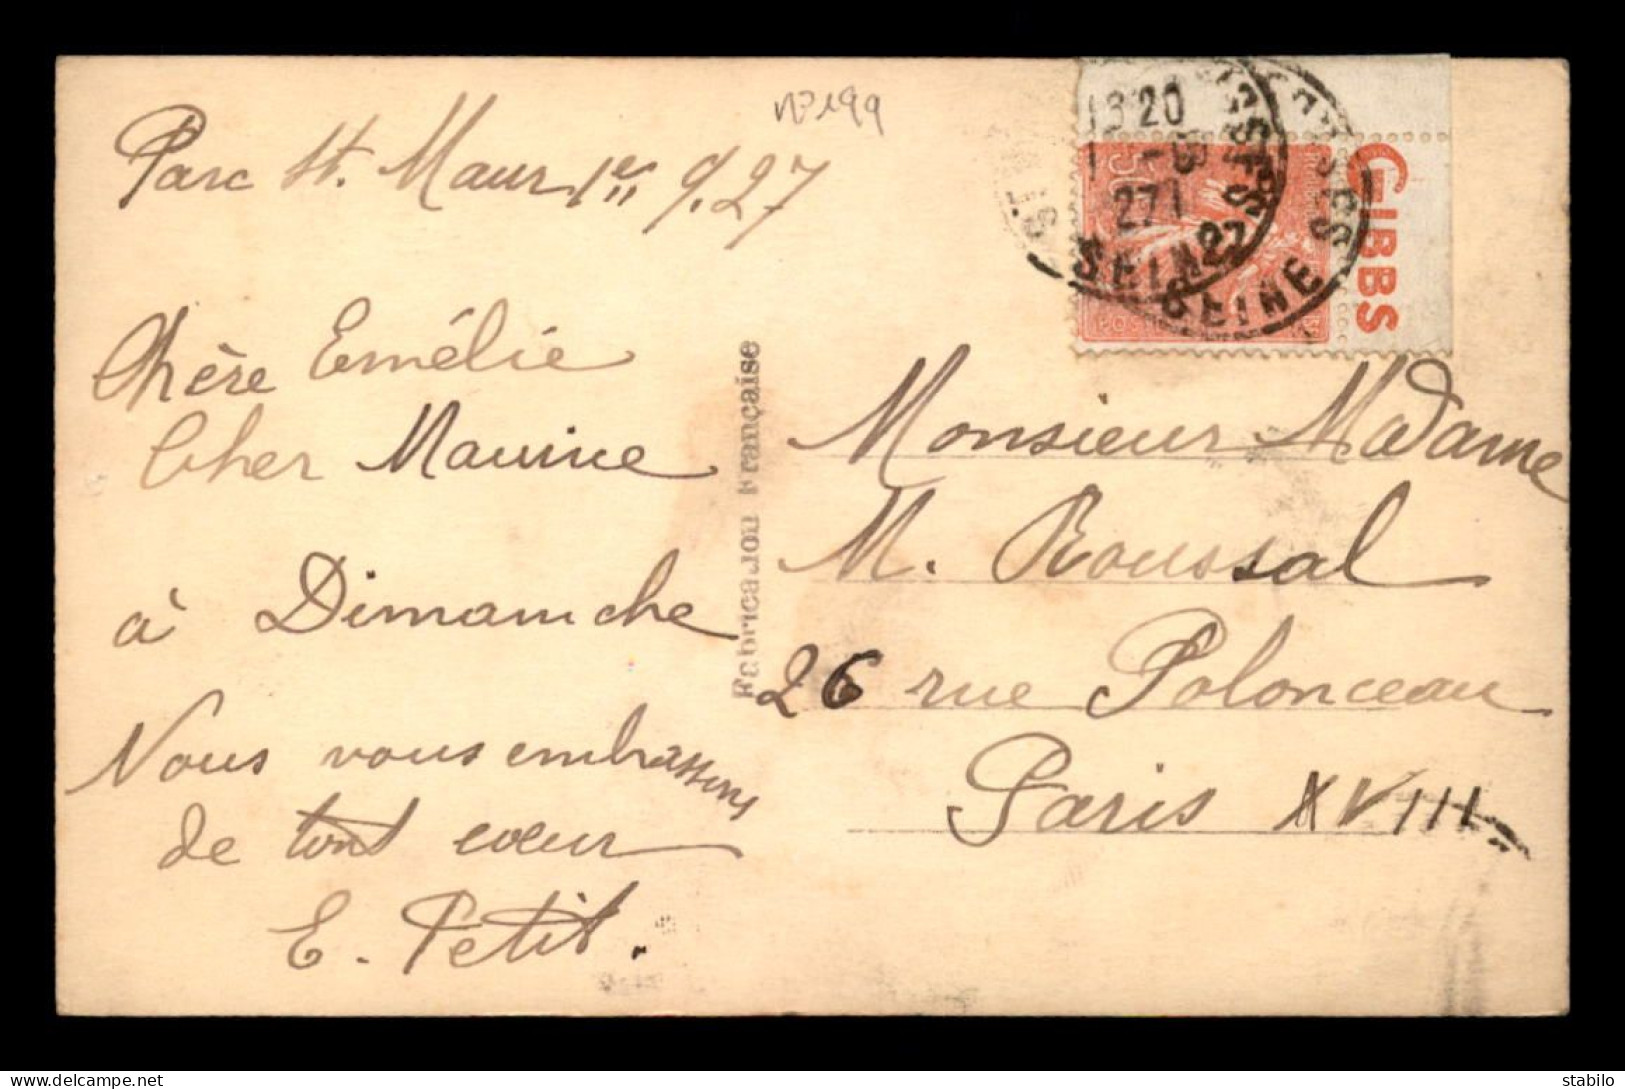 N° 199
Parc St. Maur 1er 9.27
Chère Emélie
Cher Maurice
à Dimanche
Nous vous embrassons
de tout cœur
E. Petit.
Fabrication Française
13 20
1 - 9
27
SEINE
SEINE
GIBBS
Monsieur Madame
M. Roussal
26 rue Polonceau
Paris XVIII
delcampe.net
stabilo